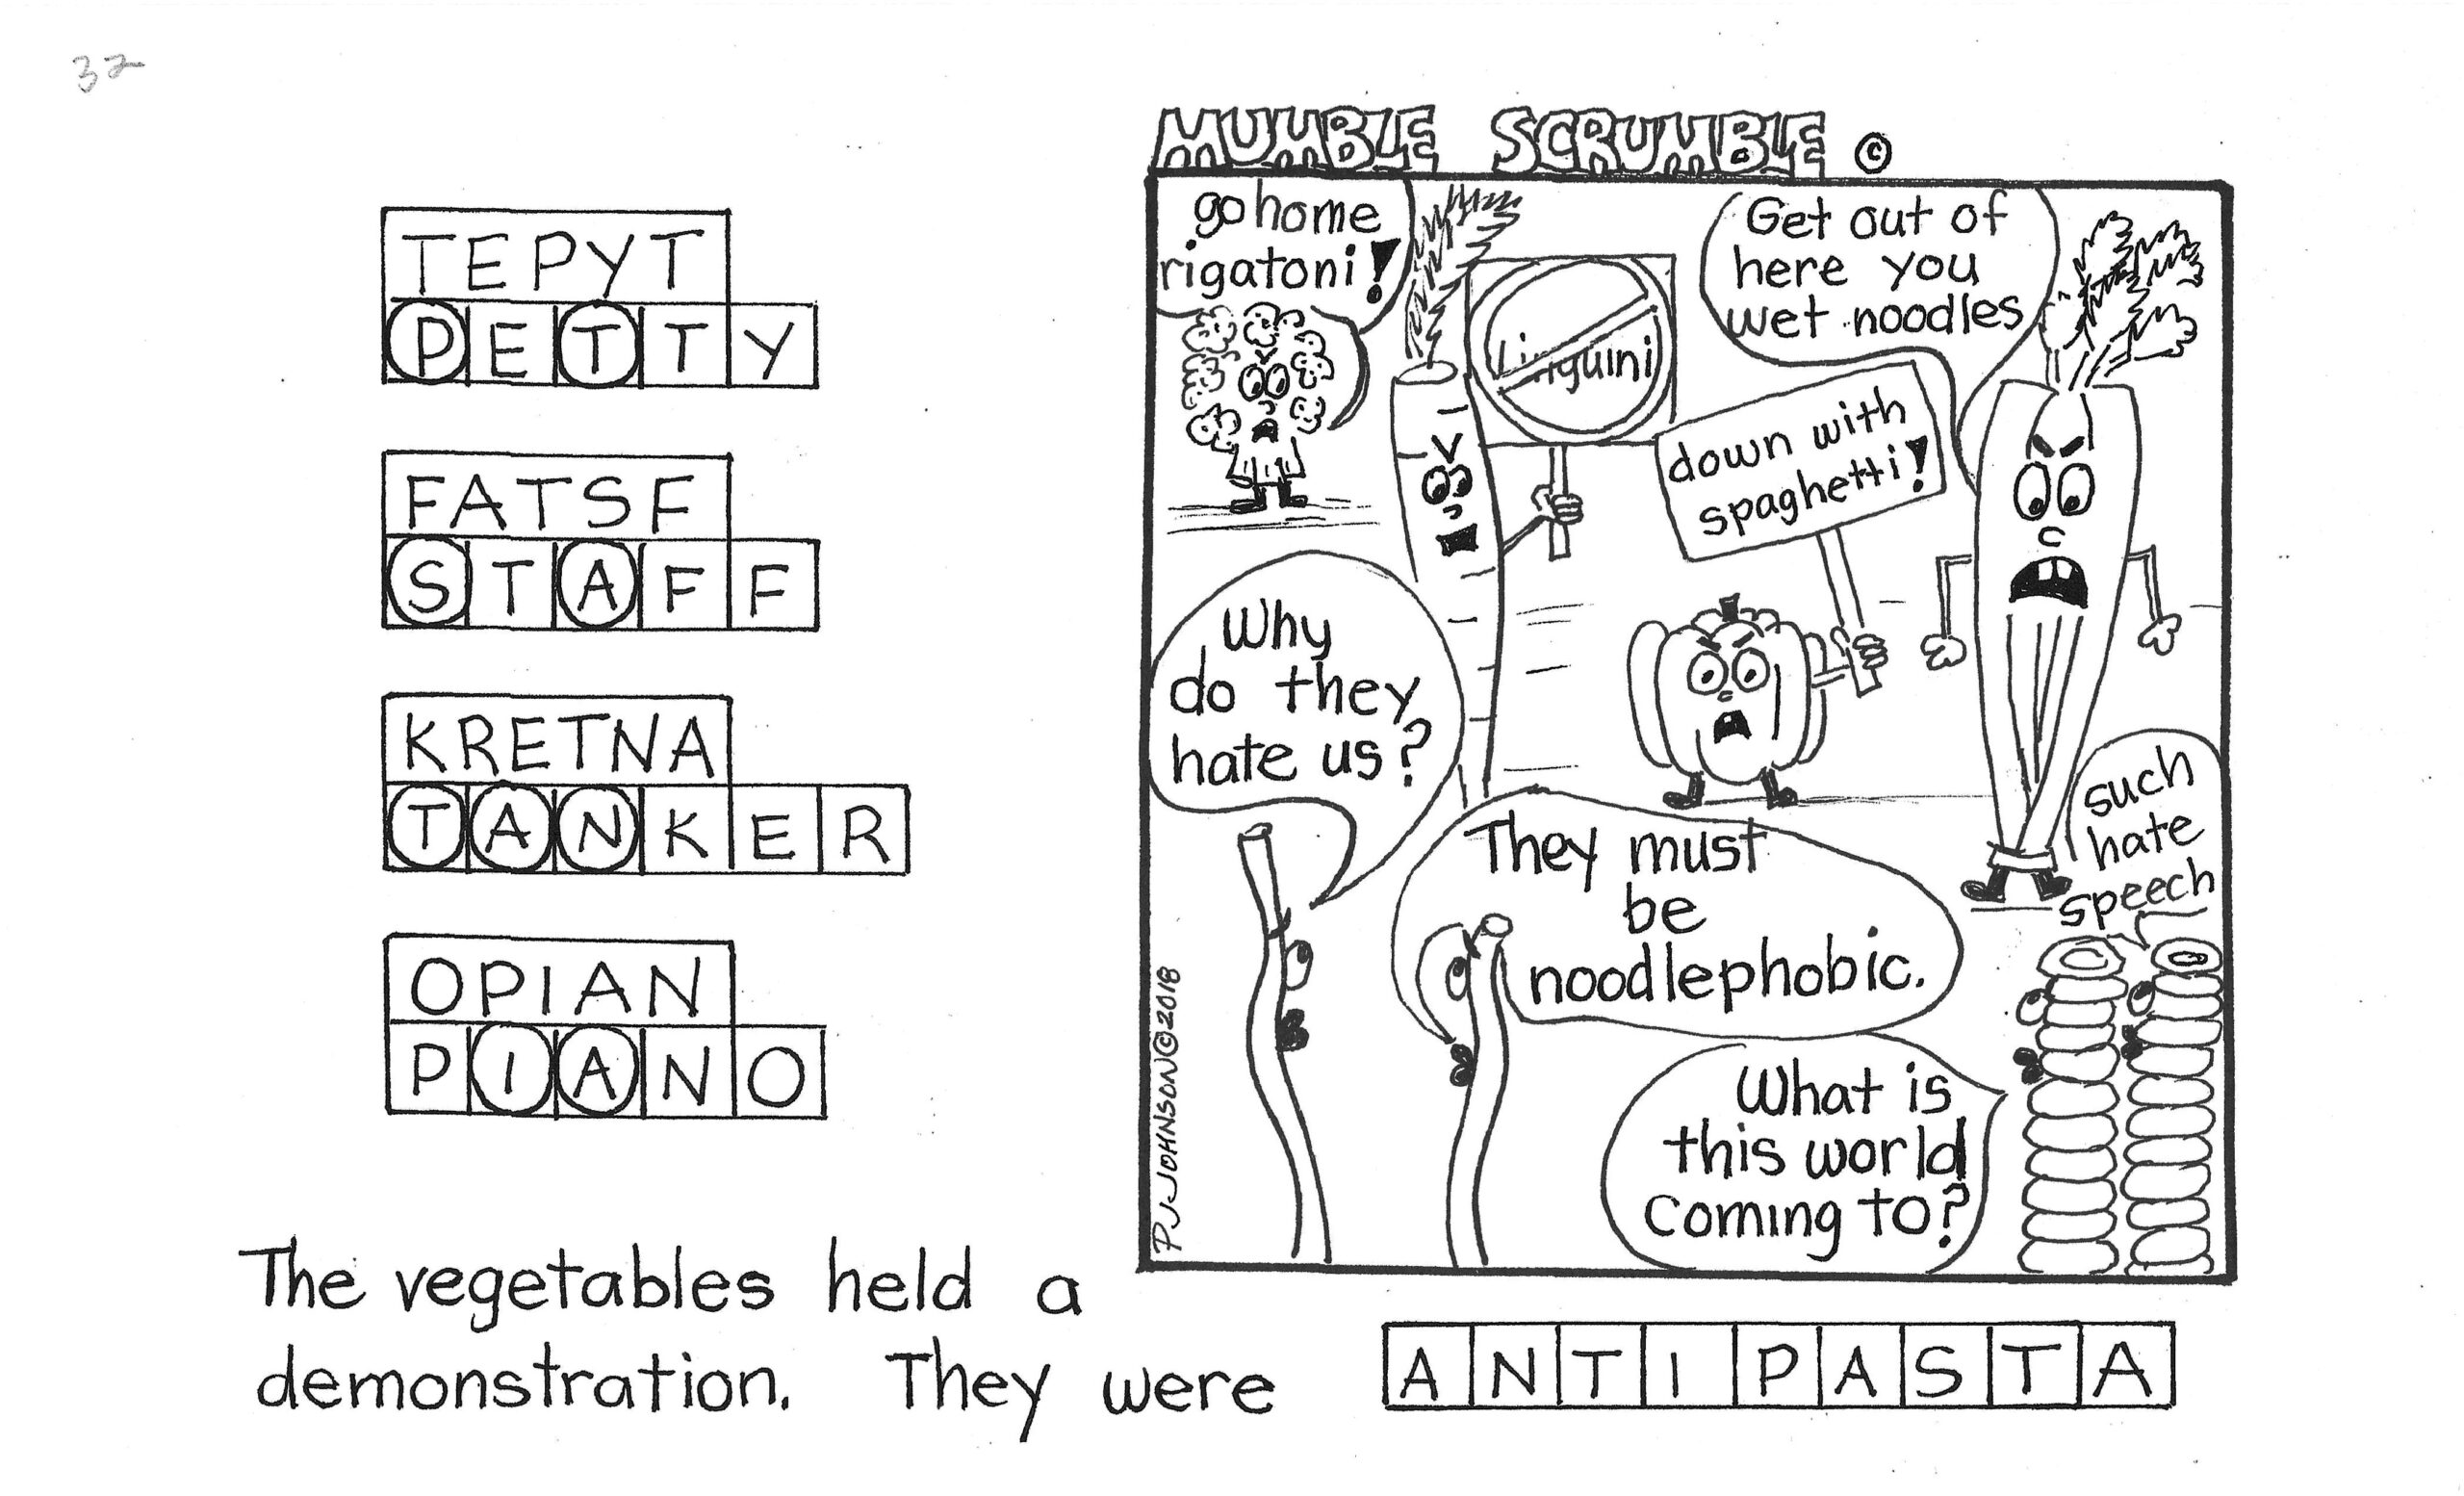 32
TEPYT
PETTY
FATSF
STAFF
KRETNA
TANKER
OPIAN
PIANO
MUMBLE SCRUMBLE ©
go home
rigatoni!
Linguini
Get out of
here you
wet noodles
down with
spaghetti!
Why
do they
hate us?
They must
be
noodlephobic.
such
hate
speech
What is
this world
coming to?
PJ JOHNSON © 2018
The vegetables held a
demonstration. They were
ANTIPASTA